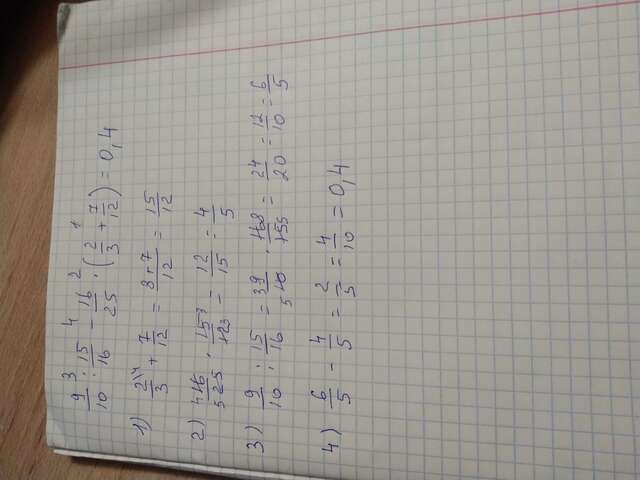 9/10 3 : 15/16 4 - 16/25 2 · (2/3 + 7/12) 1 = 0,4
1) 2/3 \4 + 7/12 = 8+7/12 = 15/12
2) 4 16/5 25 · 15 3/12 3 = 12/15 = 4/5
3) 9/10 : 15/16 = 3 9/5 10 · 16 8/15 5 = 24/20 = 12/10 = 6/5
4) 6/5 - 4/5 = 2/5 = 4/10 = 0,4